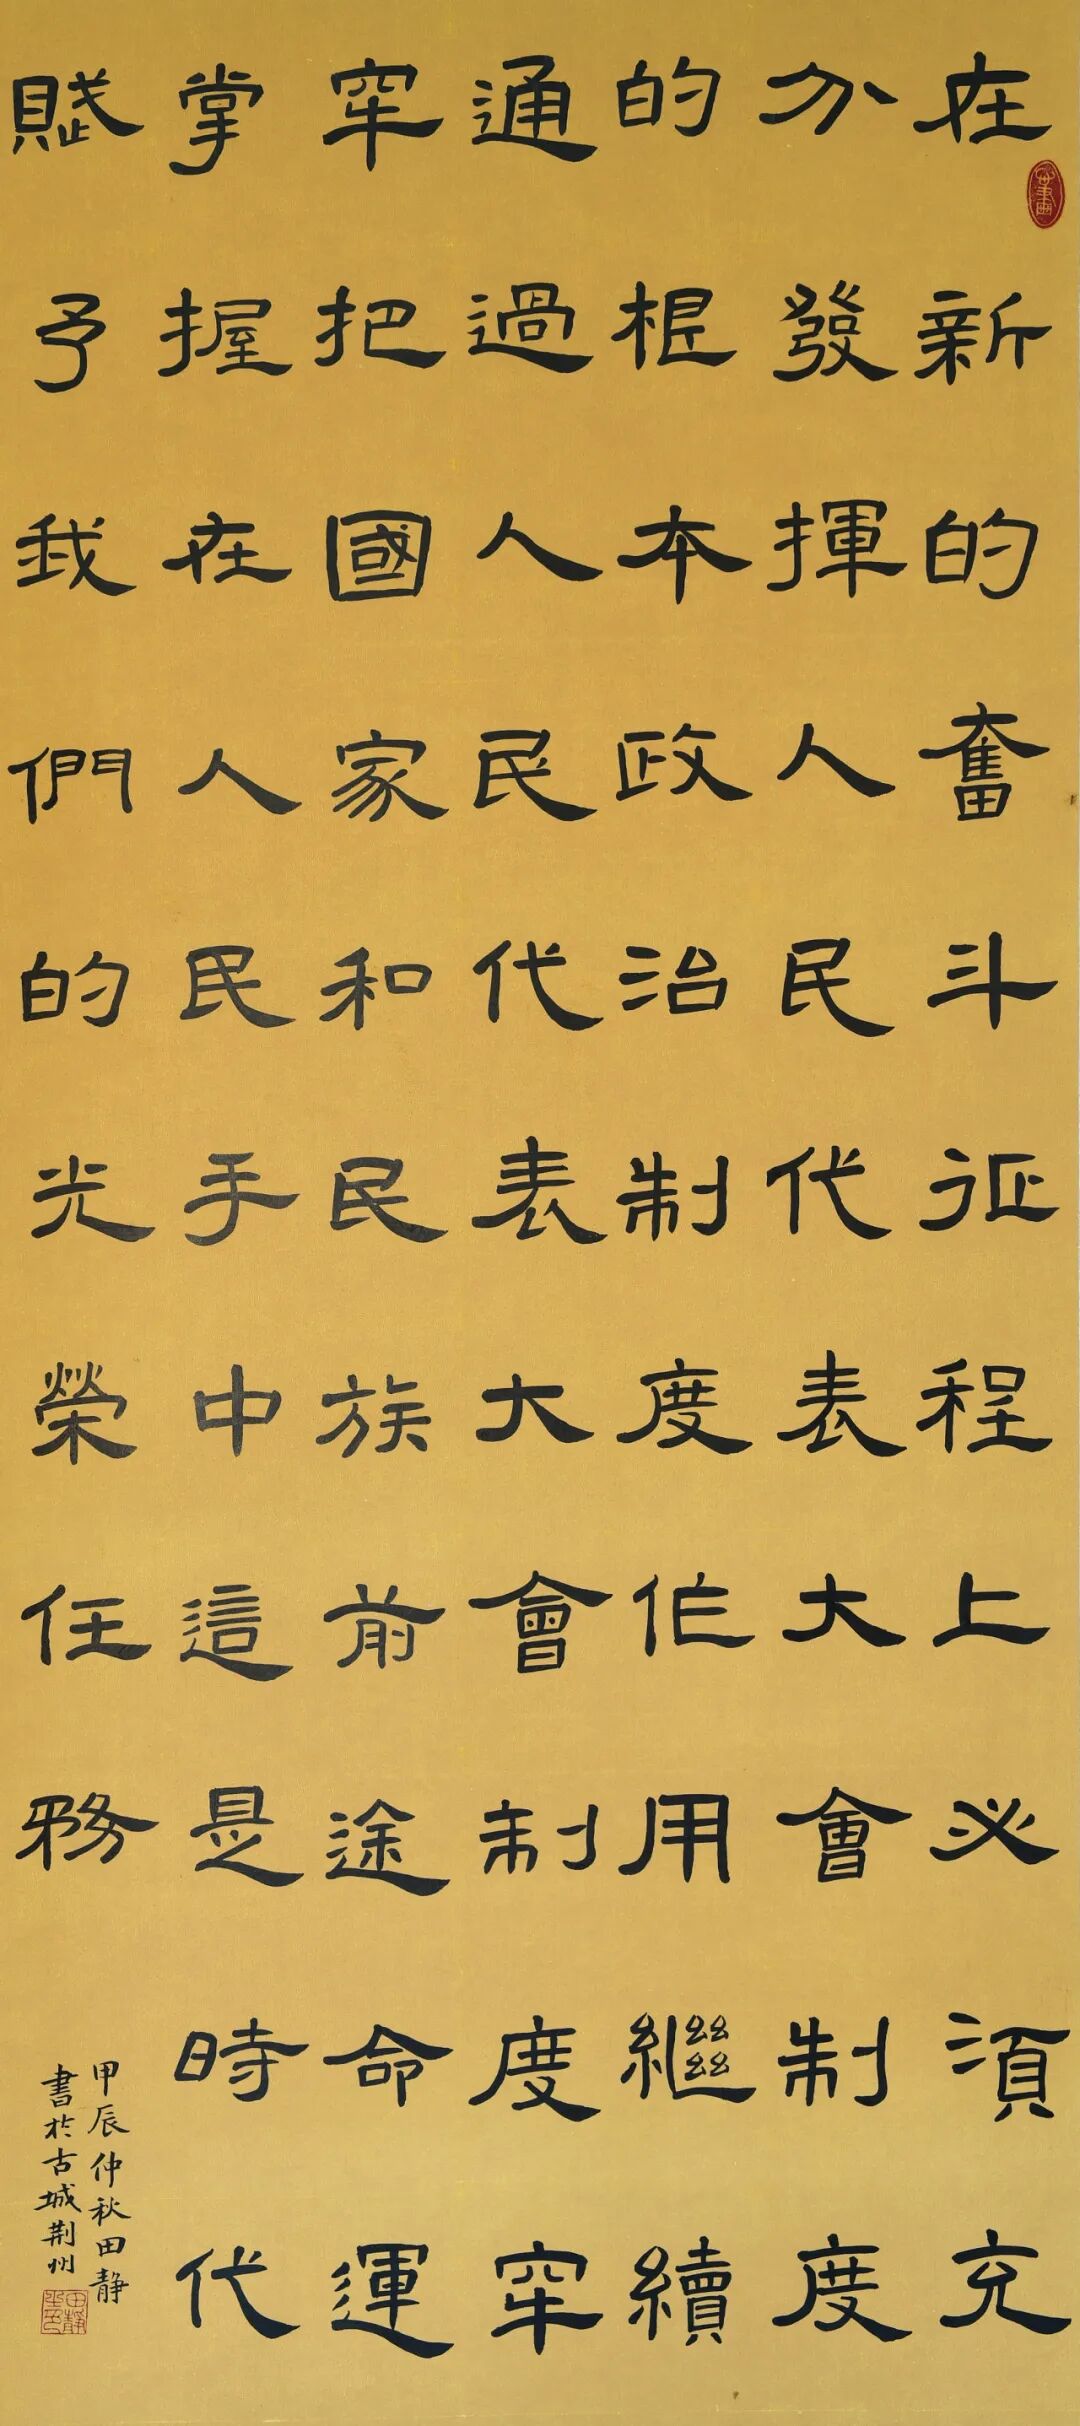 在新的奮斗征程上必須充
分發揮人民代表大會制度
的根本政治制度作用繼續
通過人民代表大會制度牢
牢把國家和民族前途命運
掌握在人民手中這是時代
賦予我們的光榮任務
甲辰仲秋田靜
書於古城荆州
田靜之印